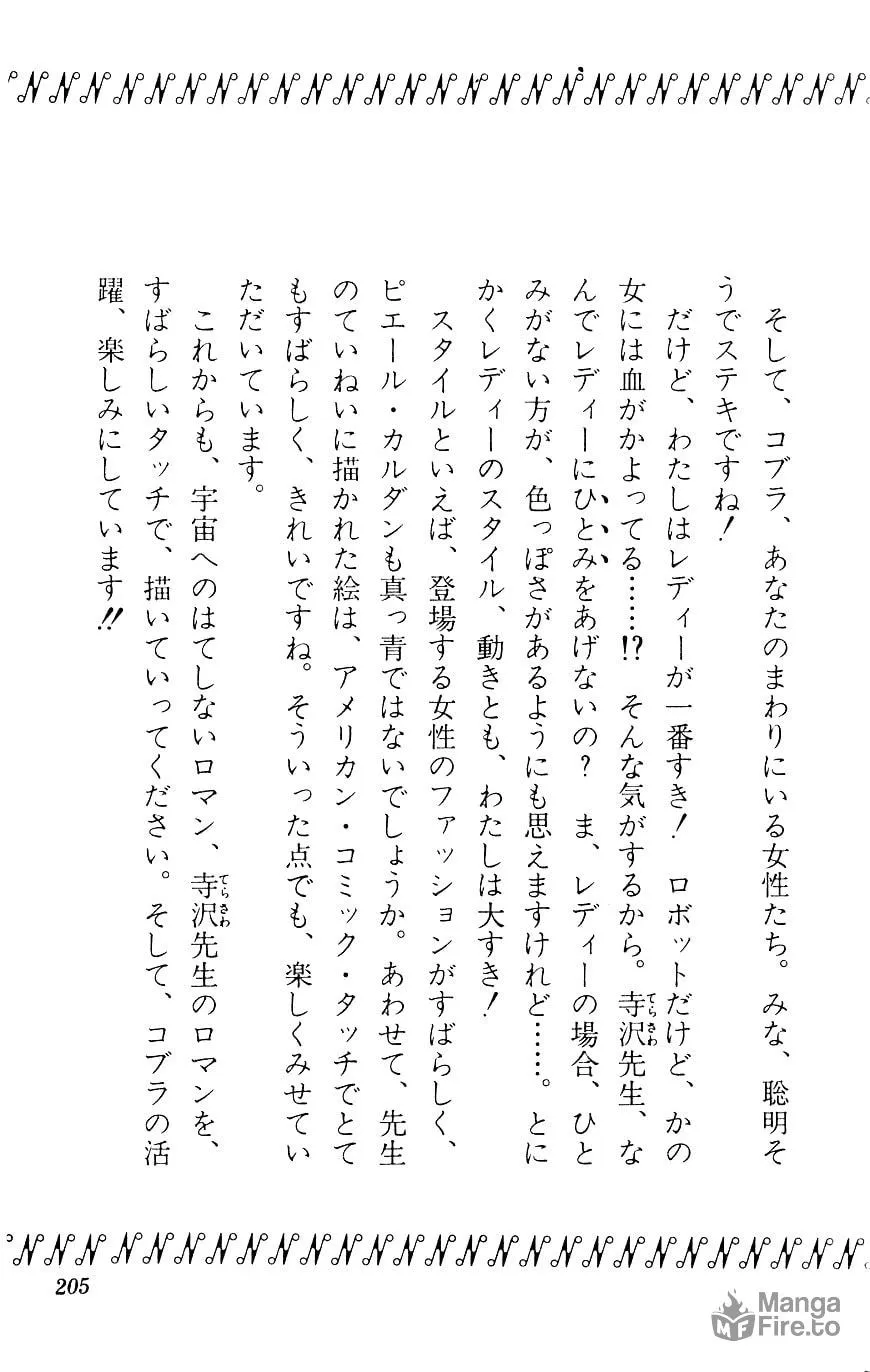 そして、コブラ、あなたのまわりにいる女性たち。みな、聡明そ
うでステキですね!
だけど、わたしはレディーが一番すき! ロボットだけど、かの
女には血がかよってる……!? そんな気がするから。寺沢先生、な
んでレディーにひとみをあげないの? ま、レディーの場合、ひと
みがない方が、色っぽさがあるようにも思えますけれど……。とに
かくレディーのスタイル、動きとも、わたしは大すき!
スタイルといえば、登場する女性のファッションがすばらしく、
ピエール・カルダンも真っ青ではないでしょうか。あわせて、先生
のていねいに描かれた絵は、アメリカン・コミック・タッチでとて
もすばらしく、きれいですね。そういった点でも、楽しくみせてい
ただいています。
これからも、宇宙へのはてしないロマン、寺沢先生のロマンを、
すばらしいタッチで、描いていってください。そして、コブラの活
躍、楽しみにしています!!
205
Manga
Fire.to